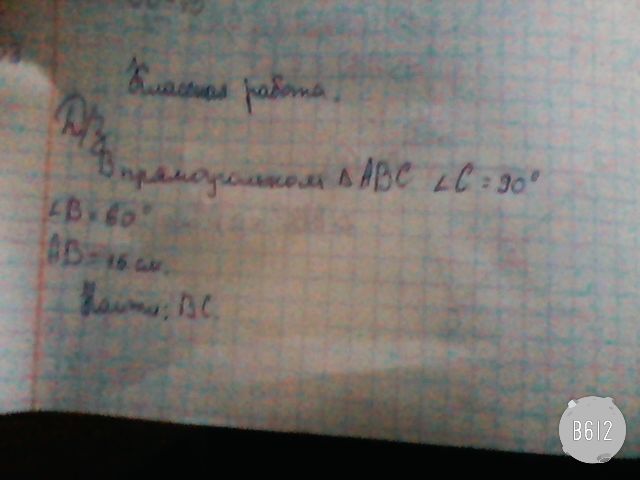 Классная работа.
Д/з
В прямоугольном Δ ABC ∠C = 90°
∠B = 60°
AB = 16 см.
Найти: BC
B612